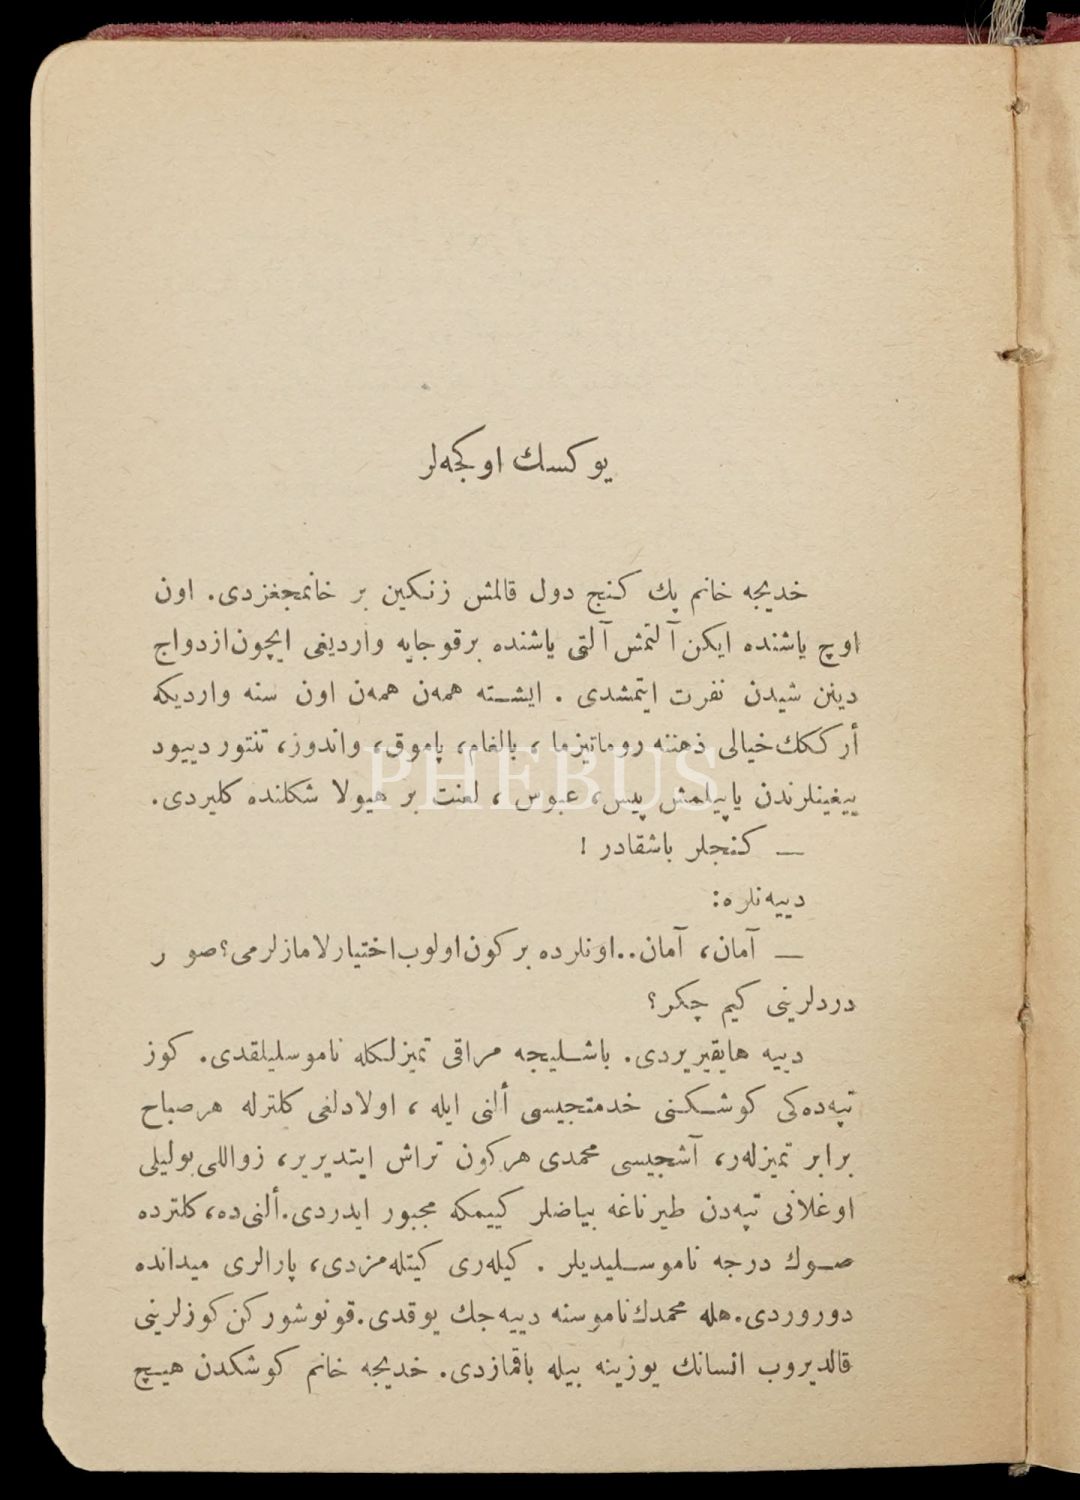 یوكسك اوكجه‌لر
خدیجه خانم پك كنج دول قالمش زنكین بر خانمجغزدی. اون
اوچ یاشنده ایكن آلتمش آلتی یاشنده برقوجایه واردیغی ایچون ازدواج
دینن شیدن نفرت ایتمشدی . ایشته همه‌ن همه‌ن اون سنه واردیكه
أركك خیالی ذهننه روماتیزما ، بالغام، پاموق، واندوز، تنتوردییود
ییغینلرندن یاپیلمش پیس، عبوس ، لعنت بر هیولا شكلنده كلیردی.
— كنجلر باشقادر !
دییه‌نلره:
— آمان، آمان..اونلرده بر كون اولوب اختیارلامازلرمی؟ صو ر
دردلرینی كیم چكر؟
دییه هایقیریردی. باشلیجه مراقی تمیزلكله ناموسلیلقدی. كوز
تپه‌ده‌كی كوشكنی خدمتجیسی ألنی ایله ، اولادلغی كلترله هرصباح
برابر تمیزله‌ر، آشجیسی محمدی هركون تراش ایتدیریر، زواللی بولیلی
اوغلانی تپه‌دن طیرناغه بیاضلر كییمكه مجبور ایدردی. ألنی‌ده، كلترده
صوك درجه ناموسلیدیلر . كیله‌ری كیتله‌مزدی، پارالری میدانده
دوروردی. هله محمدك ناموسنه دییه‌جك یوقدی. قونوشوركن كوزلرینی
قالدیروب انسانك یوزینه بیله باقمازدی. خدیجه خانم كوشكدن هیچ
PHEBUS